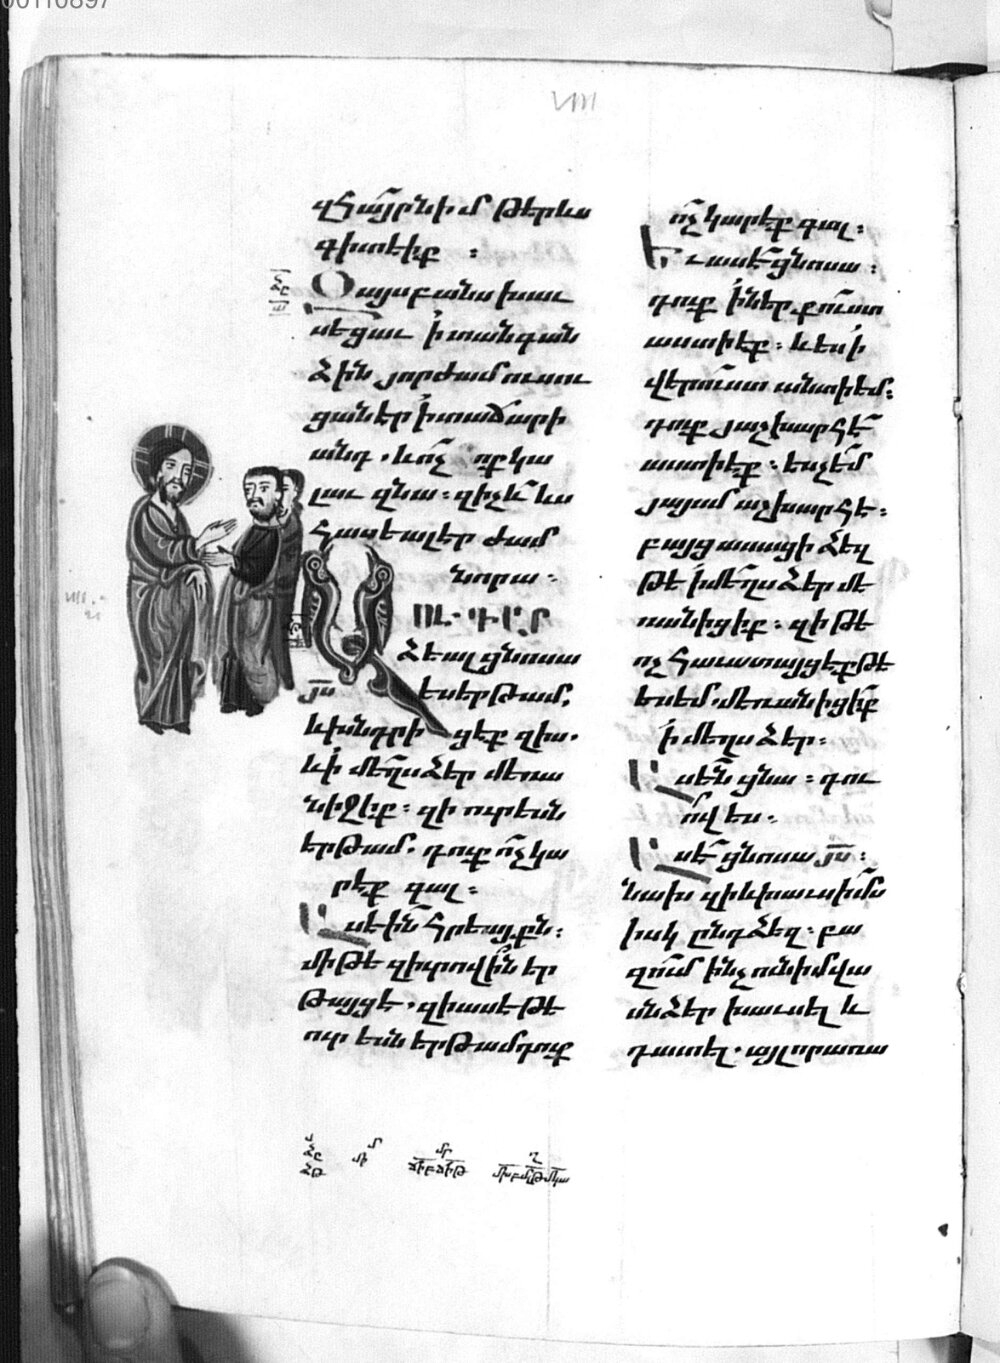 VIII
զՀայրն իմ թերևս
գիտէիք :
Զայս բանս խաւ
սեցաւ ի տանգան
ձին յորժամ ուսու
ցանէր ի տաճարի
անդ . և ոչ ոք կա
լաւ զնա : զի չև ևս
հասեալ էր ժամ
նորա :
ՈՒ ԴԱՐ
ձեալ ցնոսա
յս ես երթամ.
և խնդրի ցէք զիս .
և ի մեղս ձեր մեռա
նիջիք : զի ուր ես
երթամ . դուք ոչ կա
րէք գալ :
Ասէին հրեայքն :
մի թէ զիտովին եր
թայցէ . զի ասէ թէ
ուր ես երթամ դուք
ոչ կարէք գալ :
Եւ ասէ ցնոսա :
դուք ի ներքուստ
աստի էք : և ես ի
վերուստ անտի եմ :
դուք յաշխարհէ
աստի էք : ես չեմ
յայսմ աշխարհէ :
բայց ասացի ձեզ
թէ ի մեղս ձեր մե
ռանիցիք : զի թէ
ոչ հաւատայցէք թէ
ես եմ . մեռանիցիք
ի մեղս ձեր :
Ասեն ցնա : դու
ով ես .
Ասէ ցնոսա յս :
նախ զինխաւսիմս
իսկ ընդ ձեզ : բա
զում ինչ ունիմ վա
սն ձեր խաւսել և
դատել . այլ որ առա